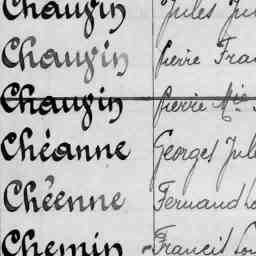 Chauvin Jules
Chauvin Pierre Fran
Chauvin Pierre Mie
Chéanne Georges Jule
Chéenne Fernand Lo
Chemin Francis Lou